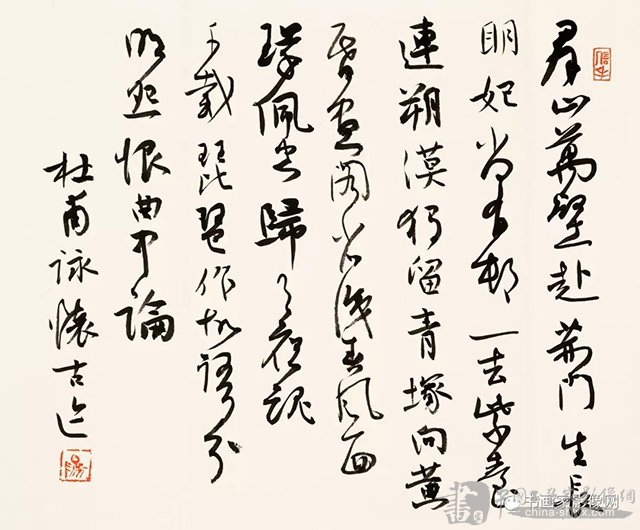 群山萬壑赴荊門生長
明妃尚有邨一去紫臺
連朔漠獨留青塚向黄
昏畫圖省識春風面
環佩空歸夜月魂
千載琵琶作胡語分
明怨恨曲中論
杜甫詠懷古迹
中国书画家影像网
china-shjyx.com